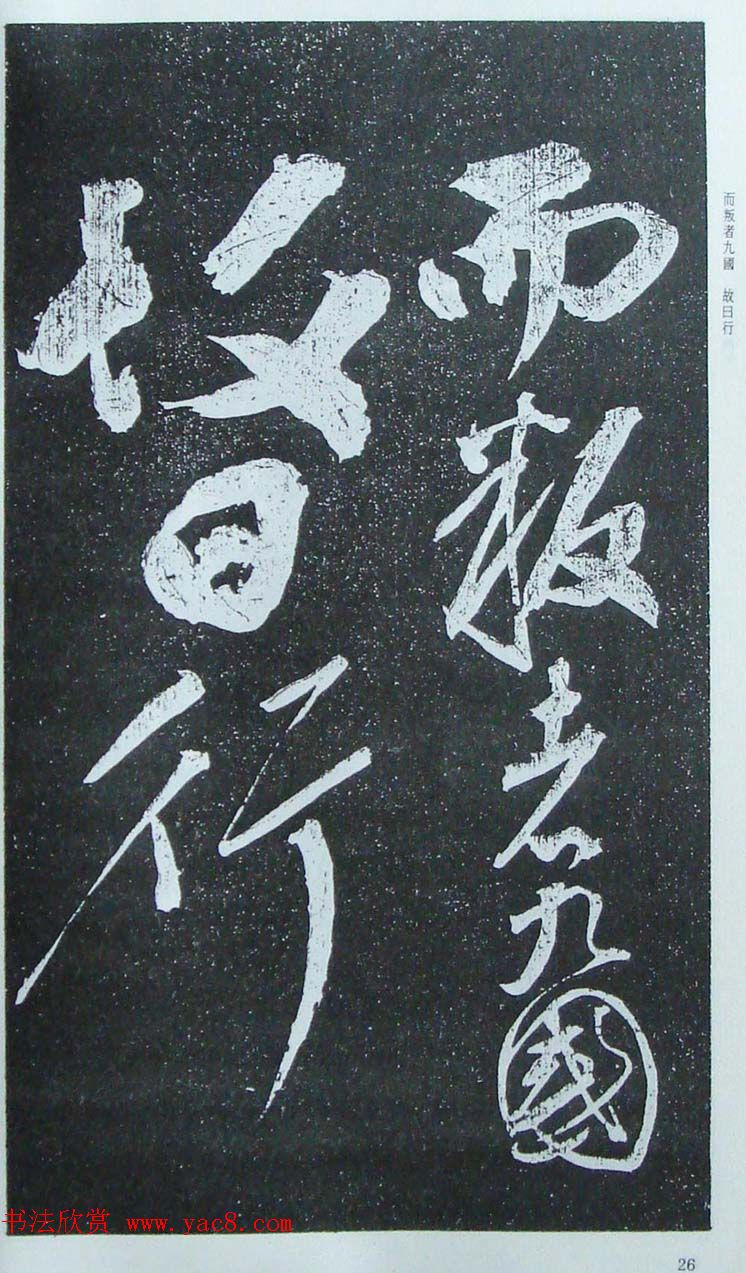 而叛者九國
故曰行
而叛者九國 故曰行
书法欣赏 www.yac8.com
26